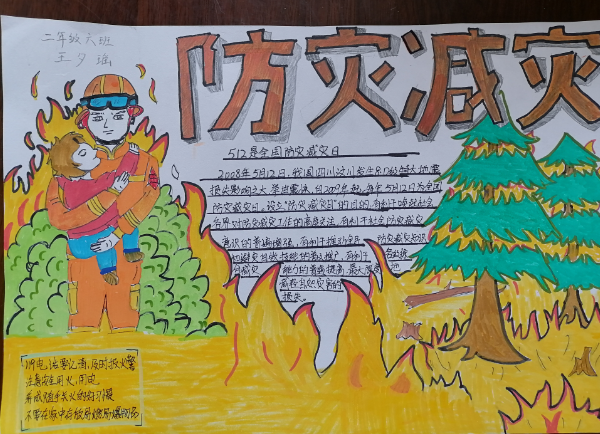 二年级六班
王夕瑶
防灾减灾
512是全国防灾减灾日
2008年5月12日,我国四川汶川发生8.0级特大地震
损失影响之大,举世震惊。自2009年起,每年5月12日为全国
防灾减灾日。设立"防灾减灾日"的目的,有利于唤起社会
各界对防灾减灾工作的高度关注,有利于社会防灾减灾
意识的普遍增强,有利于推动全民 防灾减灾知识
和避灾自救技能的普及推广,有利于 各级综
合减灾 能力的普遍提高,最大限度 地
减轻自然灾害的
损失。
119电话要记清,及时报火警
注意安全用火、用电
养成随手关火的好习惯
不要在家中存放易燃易爆物品